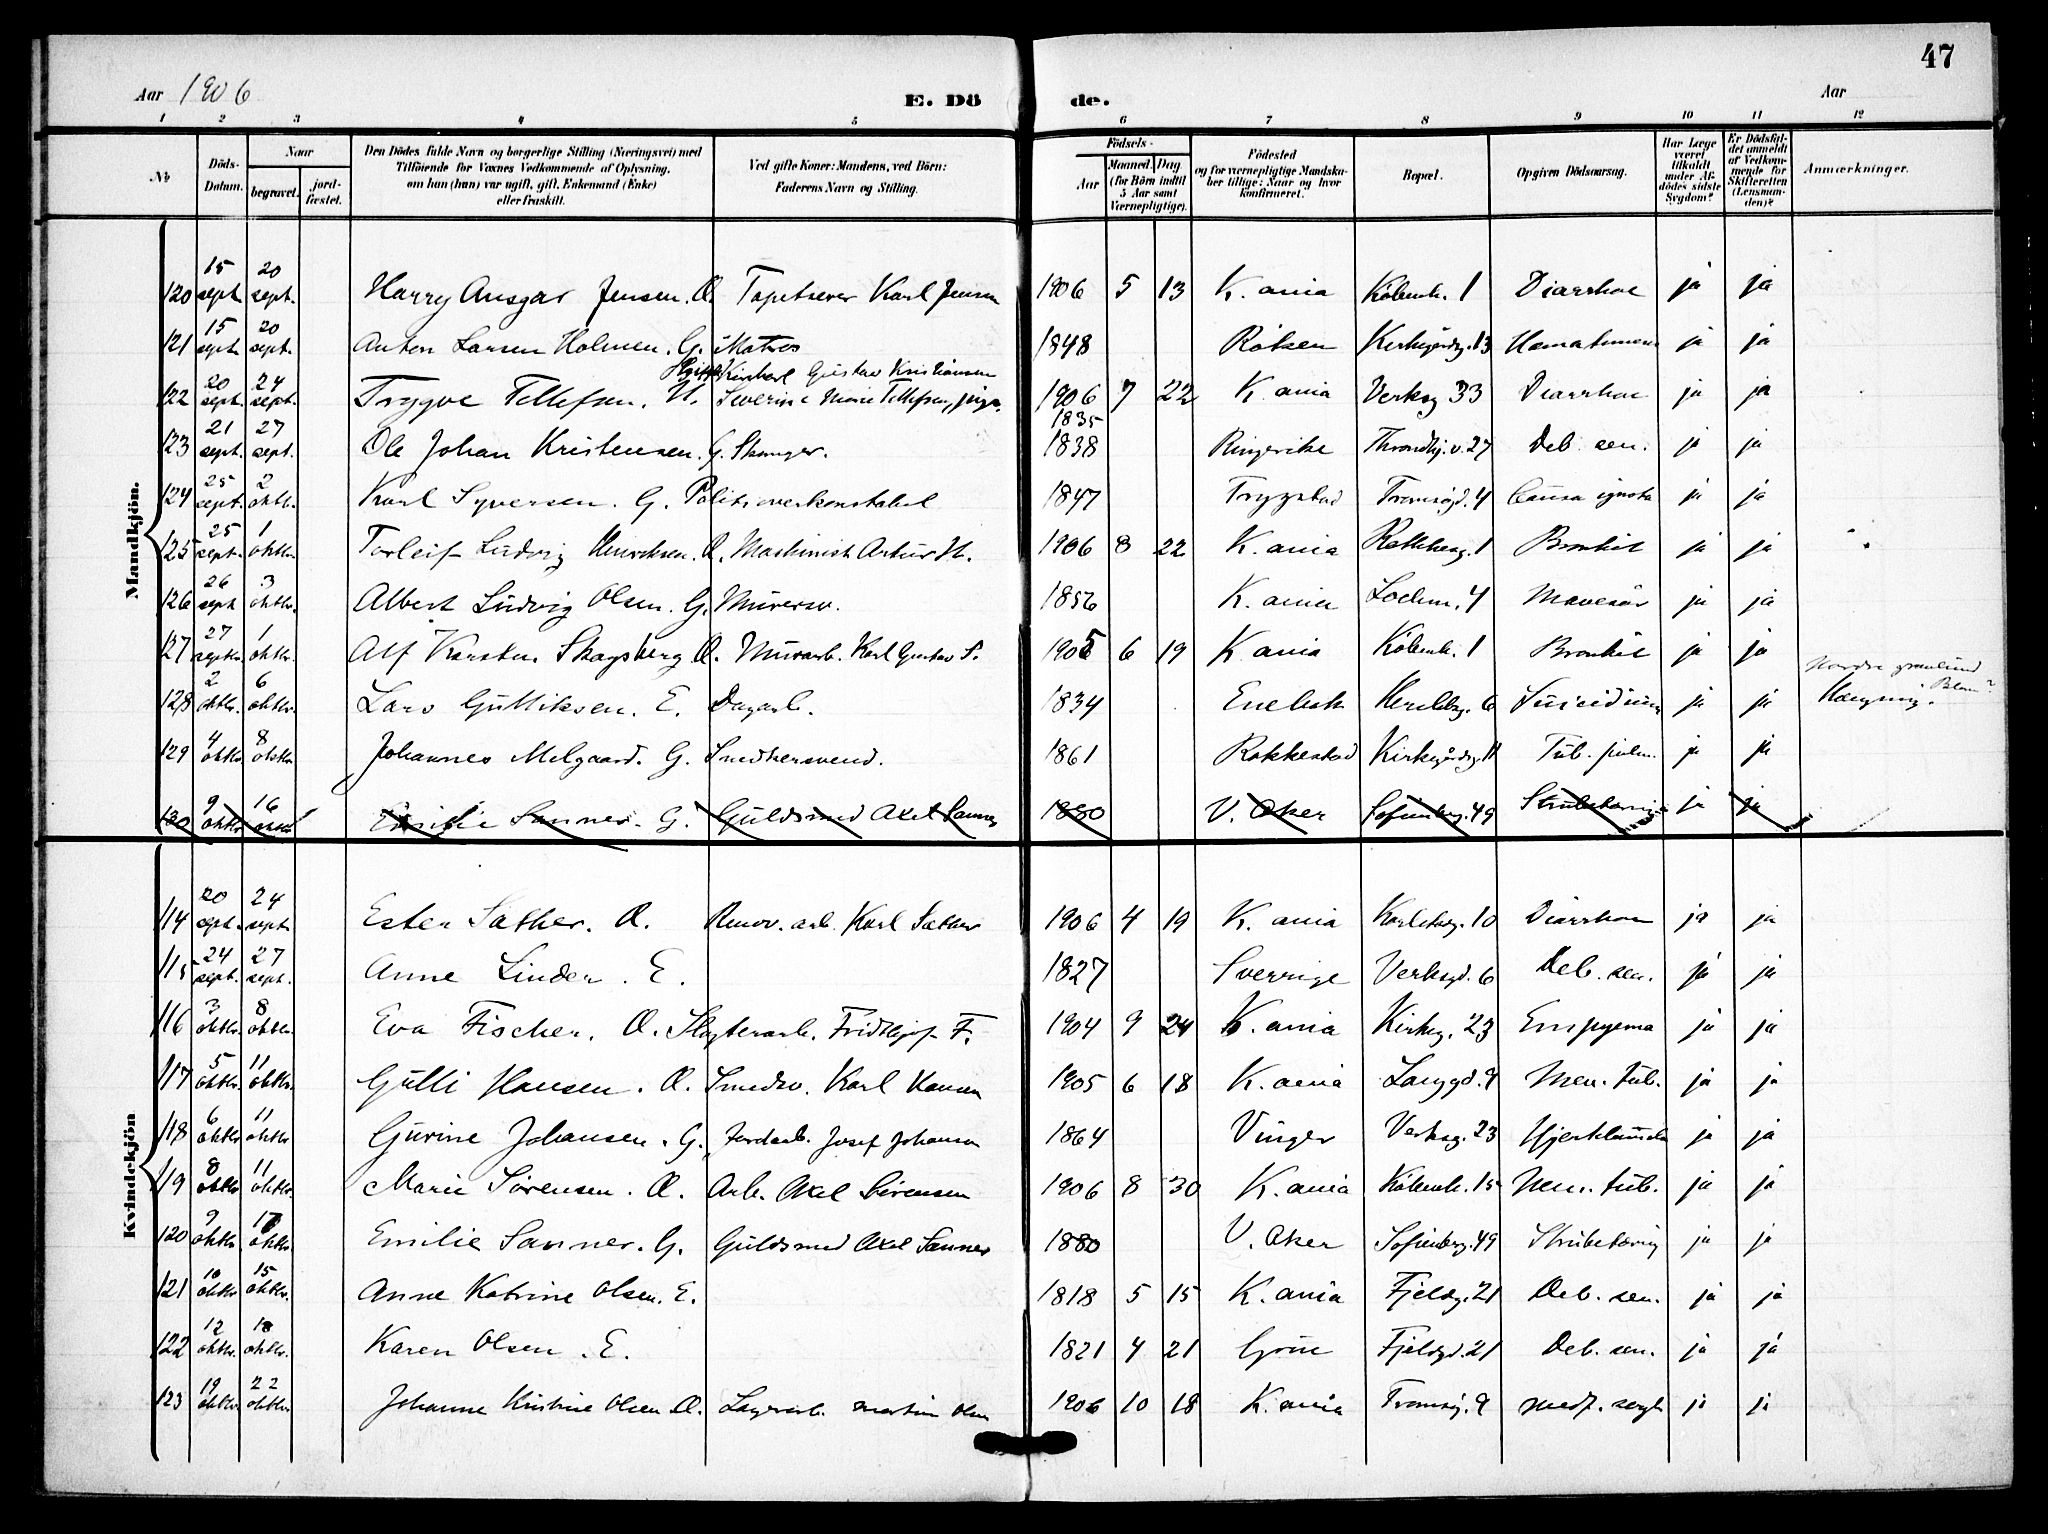 47
Aar 1906 E. Döde. Aar
1 2 3 4 5 6 7 8 9 10 11 12
No Döds-Datum. Naar begravet. jord-fæstet. Den Dödes fulde Navn og borgerlige Stilling (Næringsvei) med Tilföiende for Voxnes Vedkommende af Oplysning, om han (hun) var ugift, gift, Enkemand (Enke) eller fraskilt. Ved gifte Koner: Mandens, ved Börn: Faderens Navn og Stilling. Födsels- Aar Maaned. Dag (for Börn indtil 5 Aar samt Værnepligtige). Födested og for værnepligtige Mandskaber tillige: Naar og hvor konfirmeret. Bopæl. Opgiven Dödsaarsag. Har Læge været tilkaldt under Afdödes sidste Sygdom? Er Dödsfaldet anmeldt af Vedkommende for Skifteretten (Lensmanden)? Anmærkninger.
Mandkjön.
120 15 sept. 20 sept. Harry Ansgar Jensen. Æ. Tapetserer Karl Jensen 1906 5 13 K.ania Köbenh. 1 Diarrhoe ja ja
121 15 sept. 20 sept. Anton Larsen Holmen. G. Matros 1848 Röken Kirkegårdsg. 13 ja ja
122 20 sept. 24 sept. Trygve Tellefsen. U. Gustav Kristiansen Severine Marie Tellefsen, pige. 1906 7 22 K.ania Verksg 33 Diarrhoe ja ja
123 21 sept. 27 sept. Ole Johan Kristensen. G. 1835 1838 Ringerike Throndhj.v. 27 Deb. sen. ja ja
124 25 sept. 2 oktbr. Karl Syversen. G. Politioverkonstabel 1847 Trygstad Tromsögd. 4 Causa ignota ja ja
125 25 sept. 1 oktbr. Torleif Ludvig Henriksen. Æ. Maskinist Artur H. 1906 8 22 K.ania 1 Bronkit ja ja
126 26 sept 3 oktbr. Albert Ludvig Olsen. G. Murersv. 1856 K.ania 4 Mavesår ja ja
127 27 septbr. 1 oktbr. Alf Karsten Skagsberg Æ. Murarb. Karl Gustav S. 1905 6 19 K.ania Köbenh. 1 Bronkit ja ja
128 2 oktbr. 6 oktbr. Lars Gulliksen. E. Dagarb. 1834 Enebak Herslebg. 6 Suicidium ja ja Nordre gravlund Hængning.
129 4 oktbr 8 oktbr Johannes Melgaard. G. Snedkersvend. 1861 Rakkestad Kirkegårdsg. 11 Tub. pulm. ja ja
130 9 oktbr 16 oktbr Emilie Sanner. G. Guldsmed Axel Sanner 1880 V. Aker Sofienbrg. 49 Strubetæring ja ja
Kvindekjön
114 20 sept. 24 sept. Ester Sæther. Æ. Renov. arb. Karl Sæther 1906 4 19 K.ania Karlsbrg. 10 Diarrhoe ja ja
115 24 sept. 27 sept. Anne Linder. E. 1827 Sverrige Verksgd. 6 Deb. sen. ja ja
116 3 oktbr. 8 oktbr. Eva Fischer. Æ. Slagterarb. Fridthjof F. 1904 9 24 K.ania Kirkeg. 23 Empyema ja ja
117 5 oktbr. 11 oktbr. Gulli Hansen. Æ. Smedsv. Karl Hansen 1905 6 18 K.ania Langgd. 9 Men. tub. ja ja
118 6 oktbr 11 oktbr. Gurine Johansen. G. Jordarb. Josef Johansen 1864 Vinger Verksg. 23 ja ja
119 8 oktbr 11 oktbr. Marie Sörensen. Æ. Arb. Axel Sörensen 1906 8 30 K.ania Köbenh. 15 Men. tub. ja ja
120 9 oktbr. 17 oktbr. Emilie Sanner. G. Guldsmed Axel Sanner 1880 V. Aker Sofienbrg. 49 Strubetæring ja ja
121 10 oktbr 15 oktbr. Anne Katrine Olsen. E. 1818 5 15 K.ania Fjeldg. 21 Deb. sen. ja ja
122 12 oktbr. 18 oktbr. Karen Olsen. E. 1821 4 21 Fjeldgd. 21 Deb. sen. ja ja
123 19 oktbr. 22 oktbr. Johanne Kristine Olsen Æ. Lagerarb. Martin Olsen 1906 10 18 K.ania Tromsög. 9 medf. ja ja